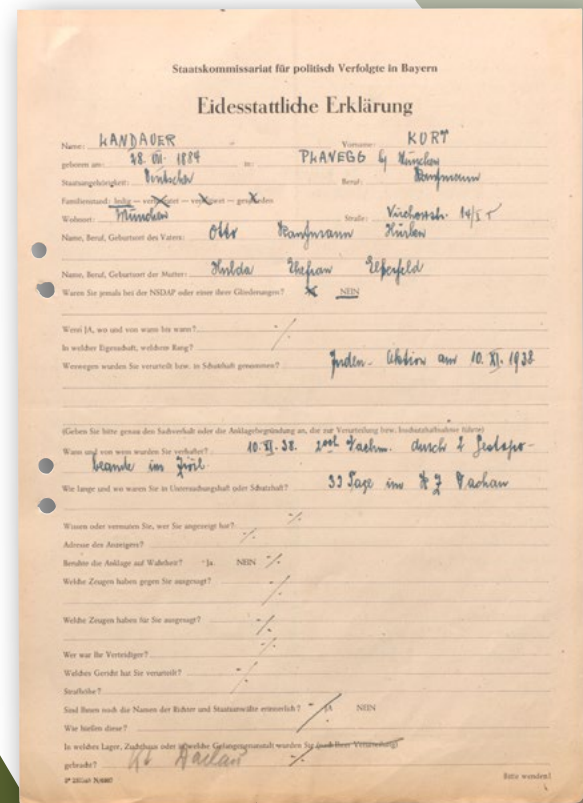 Staatskommissariat für politisch Verfolgte in Bayern
Eidesstattliche Erklärung
Name: LANDAUER Vorname: KURT
geboren am: 28. VII. 1884 in: PLANEGG b/ München
Staatsangehörigkeit: Deutscher Beruf: Kaufmann
Familienstand: ledig — verheiratet — verwitwet — geschieden
Wohnort: München Straße: Virchowstr. 14/I r
Name, Beruf, Geburtsort des Vaters: Otto Kaufmann Hürben
Name, Beruf, Geburtsort der Mutter: Hulda Ehefrau Elberfeld
Waren Sie jemals bei der NSDAP oder einer ihrer Gliederungen? NEIN
Wenn JA, wo und von wann bis wann? -/-
In welcher Eigenschaft, welchem Rang?
Weswegen wurden Sie verurteilt bzw. in Schutzhaft genommen? Juden-Aktion am 10. XI. 1938
(Geben Sie bitte genau den Sachverhalt oder die Anklagebegründung an, die zur Verurteilung bzw. Inschutzhaftnahme führte)
Wann und von wem wurden Sie verhaftet? 10. XI. 38. Nachm. durch 2 Gestapo-
beamte im Zivil.
Wie lange und wo waren Sie in Untersuchungshaft oder Schutzhaft? 33 Tage im K Z Dachau
Wissen oder vermuten Sie, wer Sie angezeigt hat? -/-
Adresse des Anzeigers? -/-
Beruhte die Anklage auf Wahrheit? Ja. NEIN -/-
Welche Zeugen haben gegen Sie ausgesagt? -/-
Welche Zeugen haben für Sie ausgesagt? -/-
Wer war Ihr Verteidiger? -/-
Welches Gericht hat Sie verurteilt? -/-
Strafhöhe? -/-
Sind Ihnen noch die Namen der Richter und Staatsanwälte erinnerlich? JA NEIN
Wie hießen diese? -/-
In welches Lager, Zuchthaus oder in welche Gefangenenanstalt wurden Sie (nach Ihrer Verurteilung)
gebracht? KZ Dachau -/-
Bitte wenden!